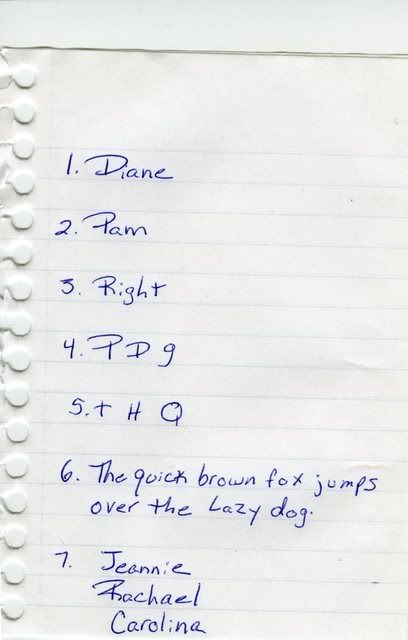 1. Diane
2. Pam
3. Right
4. P D g
5. T H Q
6. The quick brown fox jumps
over the Lazy dog.
7. Jeannie
Rachael
Carolina